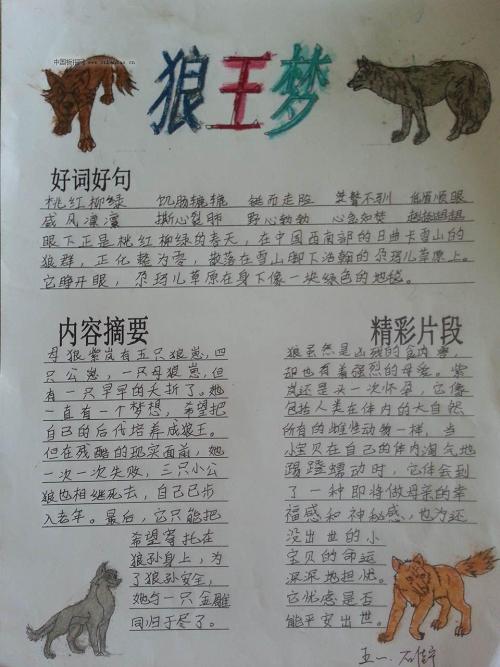 狼王梦
好词好句
桃红柳绿 饥肠辘辘 铤而走险 桀骜不驯 低眉顺眼
威风凛凛 撕心裂肺 野心勃勃 心急如焚
眼下正是桃红柳绿的春天，在中国西南部的日曲卡雪山的
狼群，正化整为零，散落在雪山脚下浩瀚的尕玛儿草原上。
它睁开眼，尕玛儿草原在身下像一块绿色的地毯。
内容摘要
母狼紫岚有五只狼崽，四
只公崽，一只母狼崽，但
有一只早早的夭折了。她
一直有一个梦想，希望把
自己的后代培养成狼王。
但在残酷的现实面前，她
一次一次失败，三只小公
狼也相继死去，自己已步
入老年。最后，它只能把
希望寄托在
狼孙身上，为
了狼孙安全，
她与一只金雕
同归于尽了。
精彩片段
狼虽然是凶残的食肉兽，
却也有着强烈的母爱。紫
岚还是头一次怀孕，它像
包括人类在体内的大自然
所有的雌性动物一样，当
小宝贝在自己的体内淘气地
踢蹬蠕动时，它体会到
了一种即将做母亲的幸
福感和神秘感，也为还
没出世的小
宝贝的命运
深深地担忧。
它忧虑是否
能平安出世。
五一、